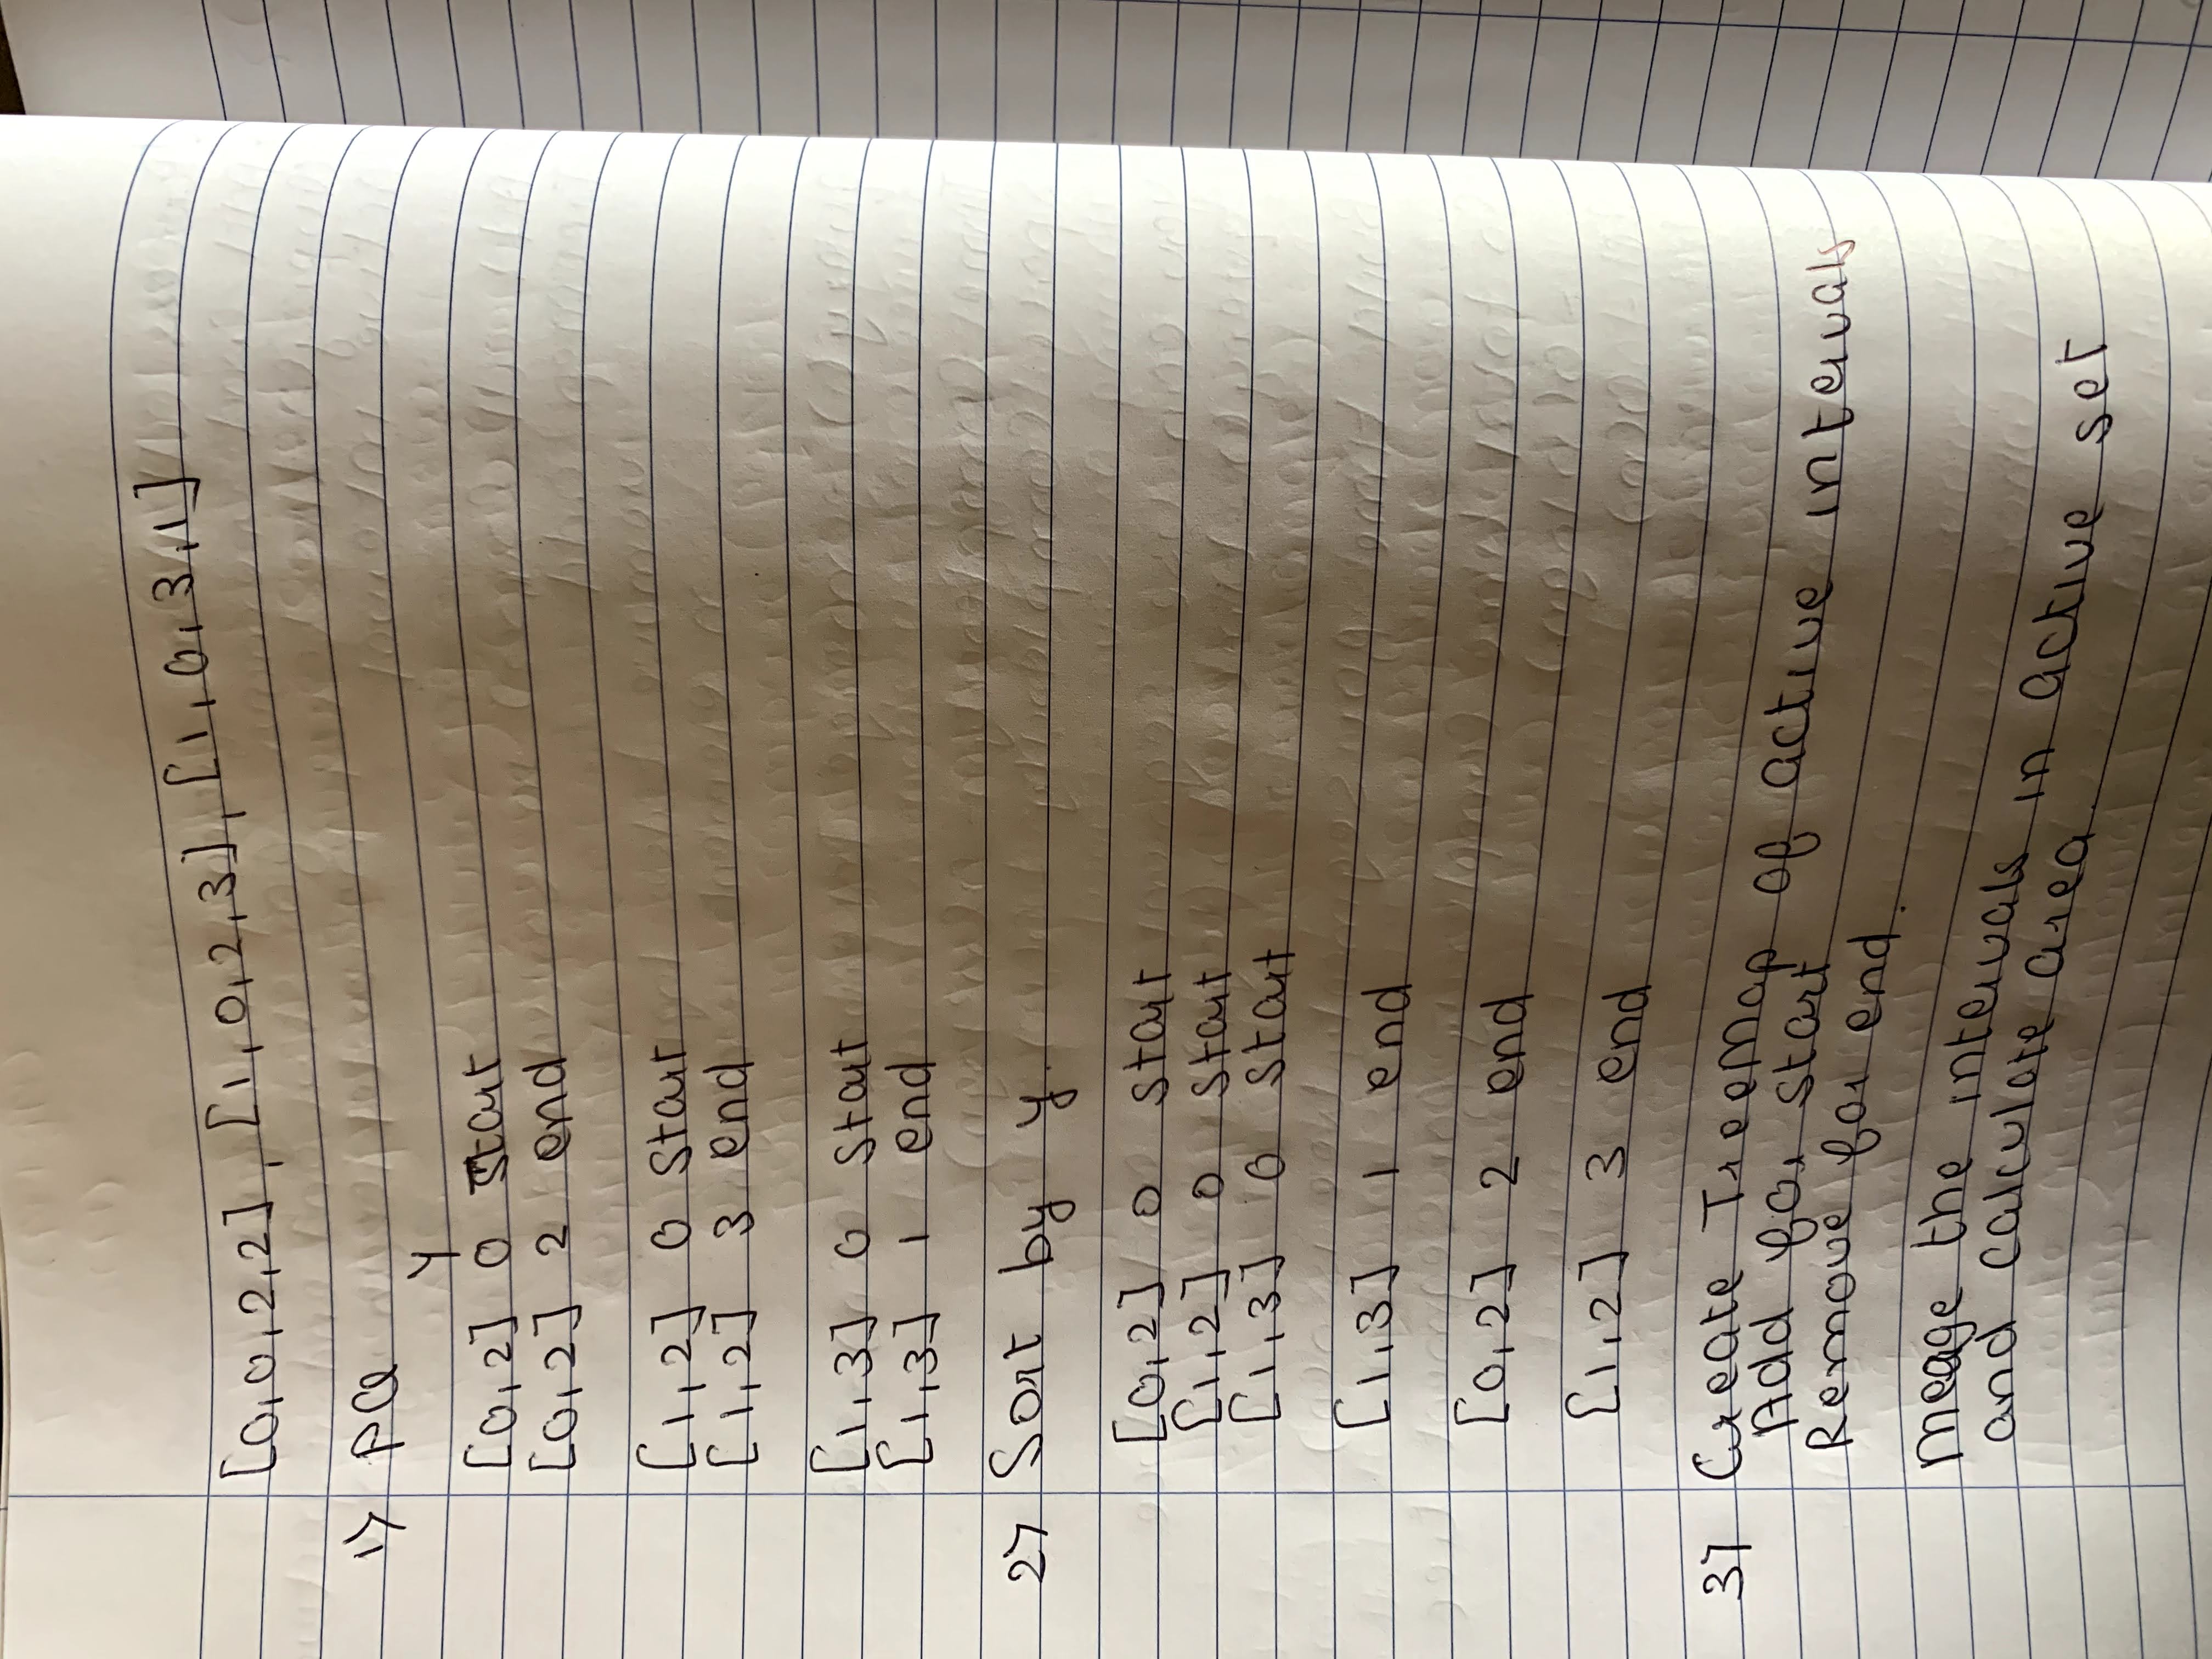 [0,0,2,2], [1,0,2,3], [1,0,3,1]
1) PQ
Y
[0,2] 0 start
[0,2] 2 end
[1,2] 0 start
[1,2] 3 end
[1,3] 0 start
[1,3] 1 end
2) Sort by y.
[0,2] 0 start
[1,2] 0 start
[1,3] 0 start
[1,3] 1 end
[0,2] 2 end
[1,2] 3 end
3) Create TreeMap of active intervals
Add for start
Remove for end.
merge the intervals in active set
and calculate area.